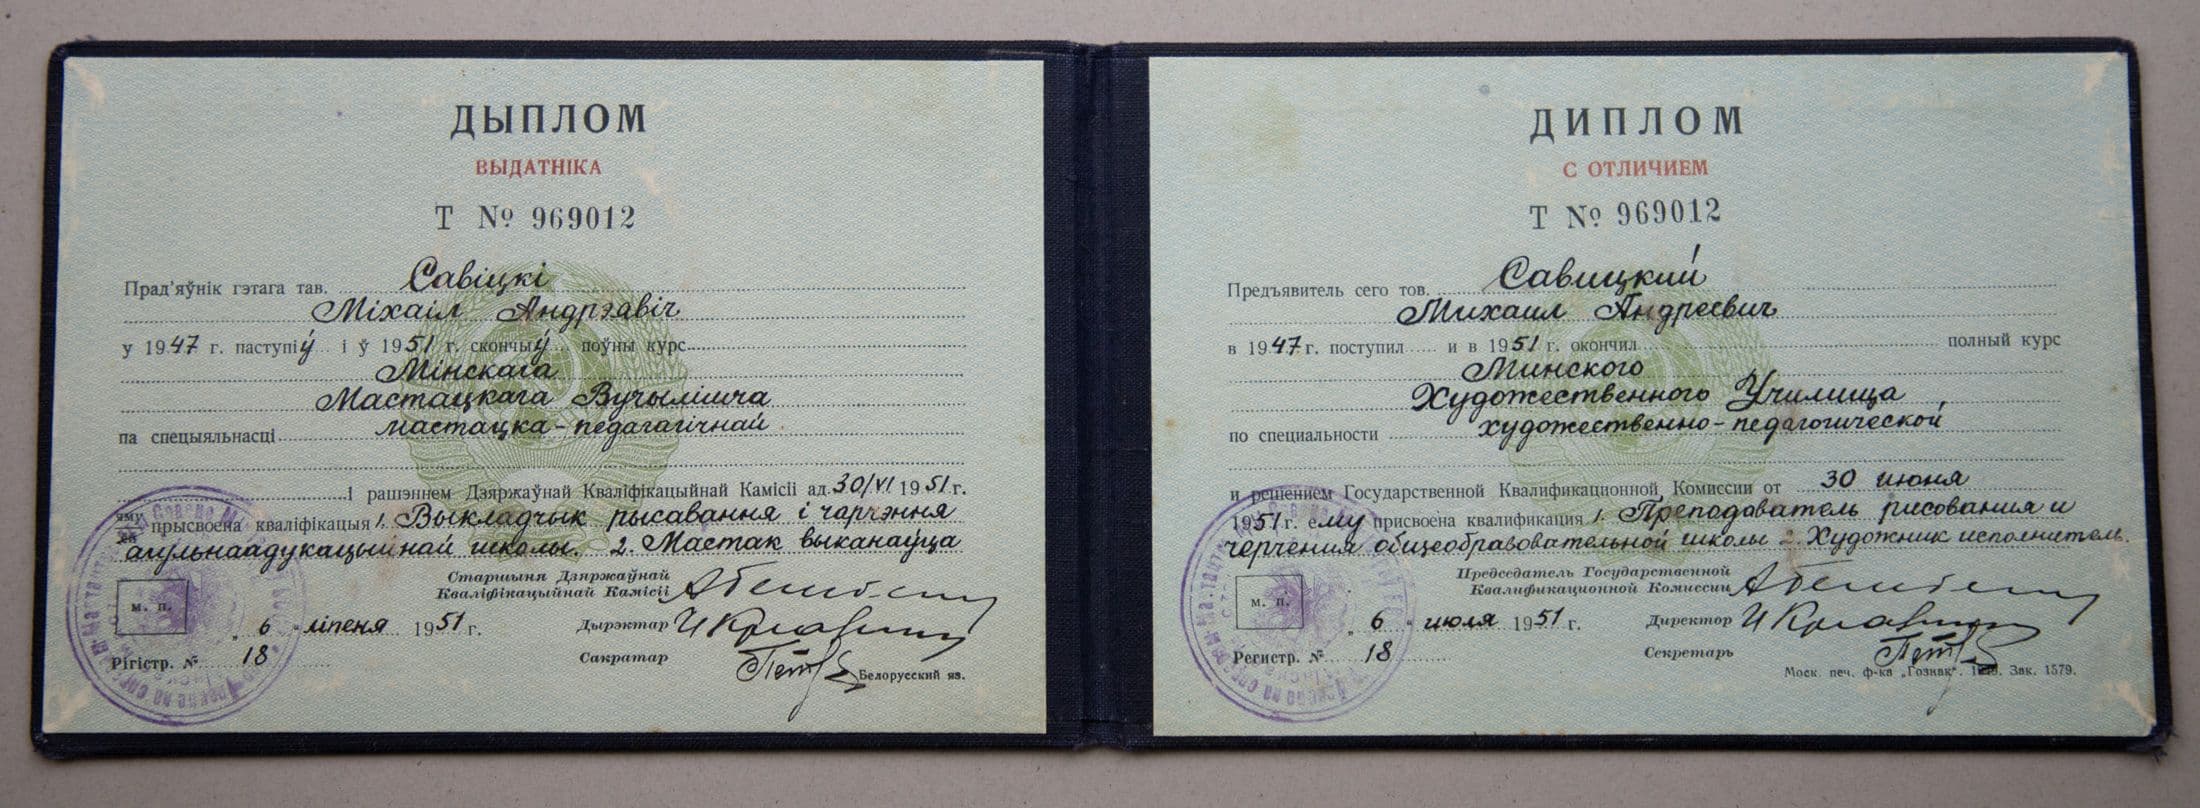 ДЫПЛОМ
ВЫДАТНІКА
Т № 969012
Прад'яўнік гэтага тав. Савіцкі
Міхаіл Андрэавіч
у 1947 г. паступіў і ў 1951 г. скончыў поўны курс
Мінскага
Мастацкага Вучылішча
па спецыяльнасці мастацка-педагагічнай
і рашэннем Дзяржаўнай Кваліфікацыйнай Камісіі ад 30/VI 1951 г.
яму прысвоена кваліфікацыя 1. Выкладчык рысавання і чарчэння
агульнаадукацыйнай школы. 2. Мастак выканаўца
Старшыня Дзяржаўнай
Кваліфікацыйнай Камісіі
м. п.
„ 6 " ліпеня 1951 г.
Дырэктар
Рэгістр. № 18
Сакратар
Белорусский яз.
ДИПЛОМ
С ОТЛИЧИЕМ
Т № 969012
Предъявитель сего тов. Савицкий
Михаил Андреевич
в 1947 г. поступил и в 1951 г. окончил полный курс
Минского
Художественного Училища
по специальности художественно-педагогической
и решением Государственной Квалификационной Комиссии от 30 июня
1951 г. ему присвоена квалификация 1. Преподаватель рисования и
черчения общеобразовательной школы 2. Художник исполнитель.
Председатель Государственной
Квалификационной Комиссии
м. п.
„ 6 " июля 1951 г.
Директор
Регистр. № 18
Секретарь
Моск. печ. ф-ка „Гознак". Зак. 1579.